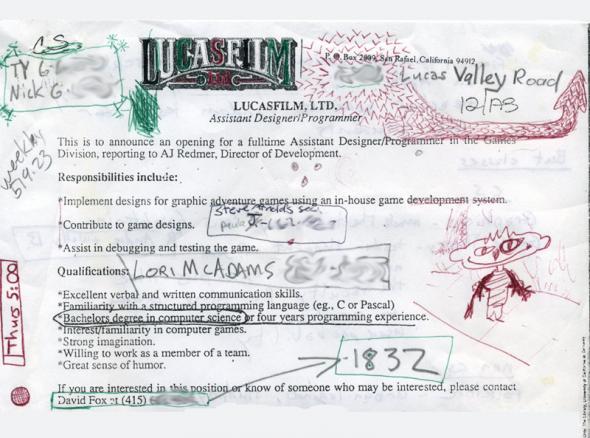 TY G
Nick G
LUCASFILM
Ltd
P.O. Box 2009, San Rafael, California 94912
Lucas Valley Road
12/AB
LUCASFILM, LTD.
Assistant Designer/Programmer
weekly
This is to announce an opening for a fulltime Assistant Designer/Programmer in the Games
Division, reporting to AJ Redmer, Director of Development.
Responsibilities include:
*Implement designs for graphic adventure games using an in-house game development system.
*Contribute to game designs.
*Assist in debugging and testing the game.
Qualifications:
LORI MCADAMS
*Excellent verbal and written communication skills.
*Familiarity with a structured programming language (eg., C or Pascal)
*Bachelors degree in computer science or four years programming experience.
*Interest/familiarity in computer games.
*Strong imagination.
*Willing to work as a member of a team.
*Great sense of humor.
Thurs 5:00
1832
If you are interested in this position or know of someone who may be interested, please contact
David Fox at (415)